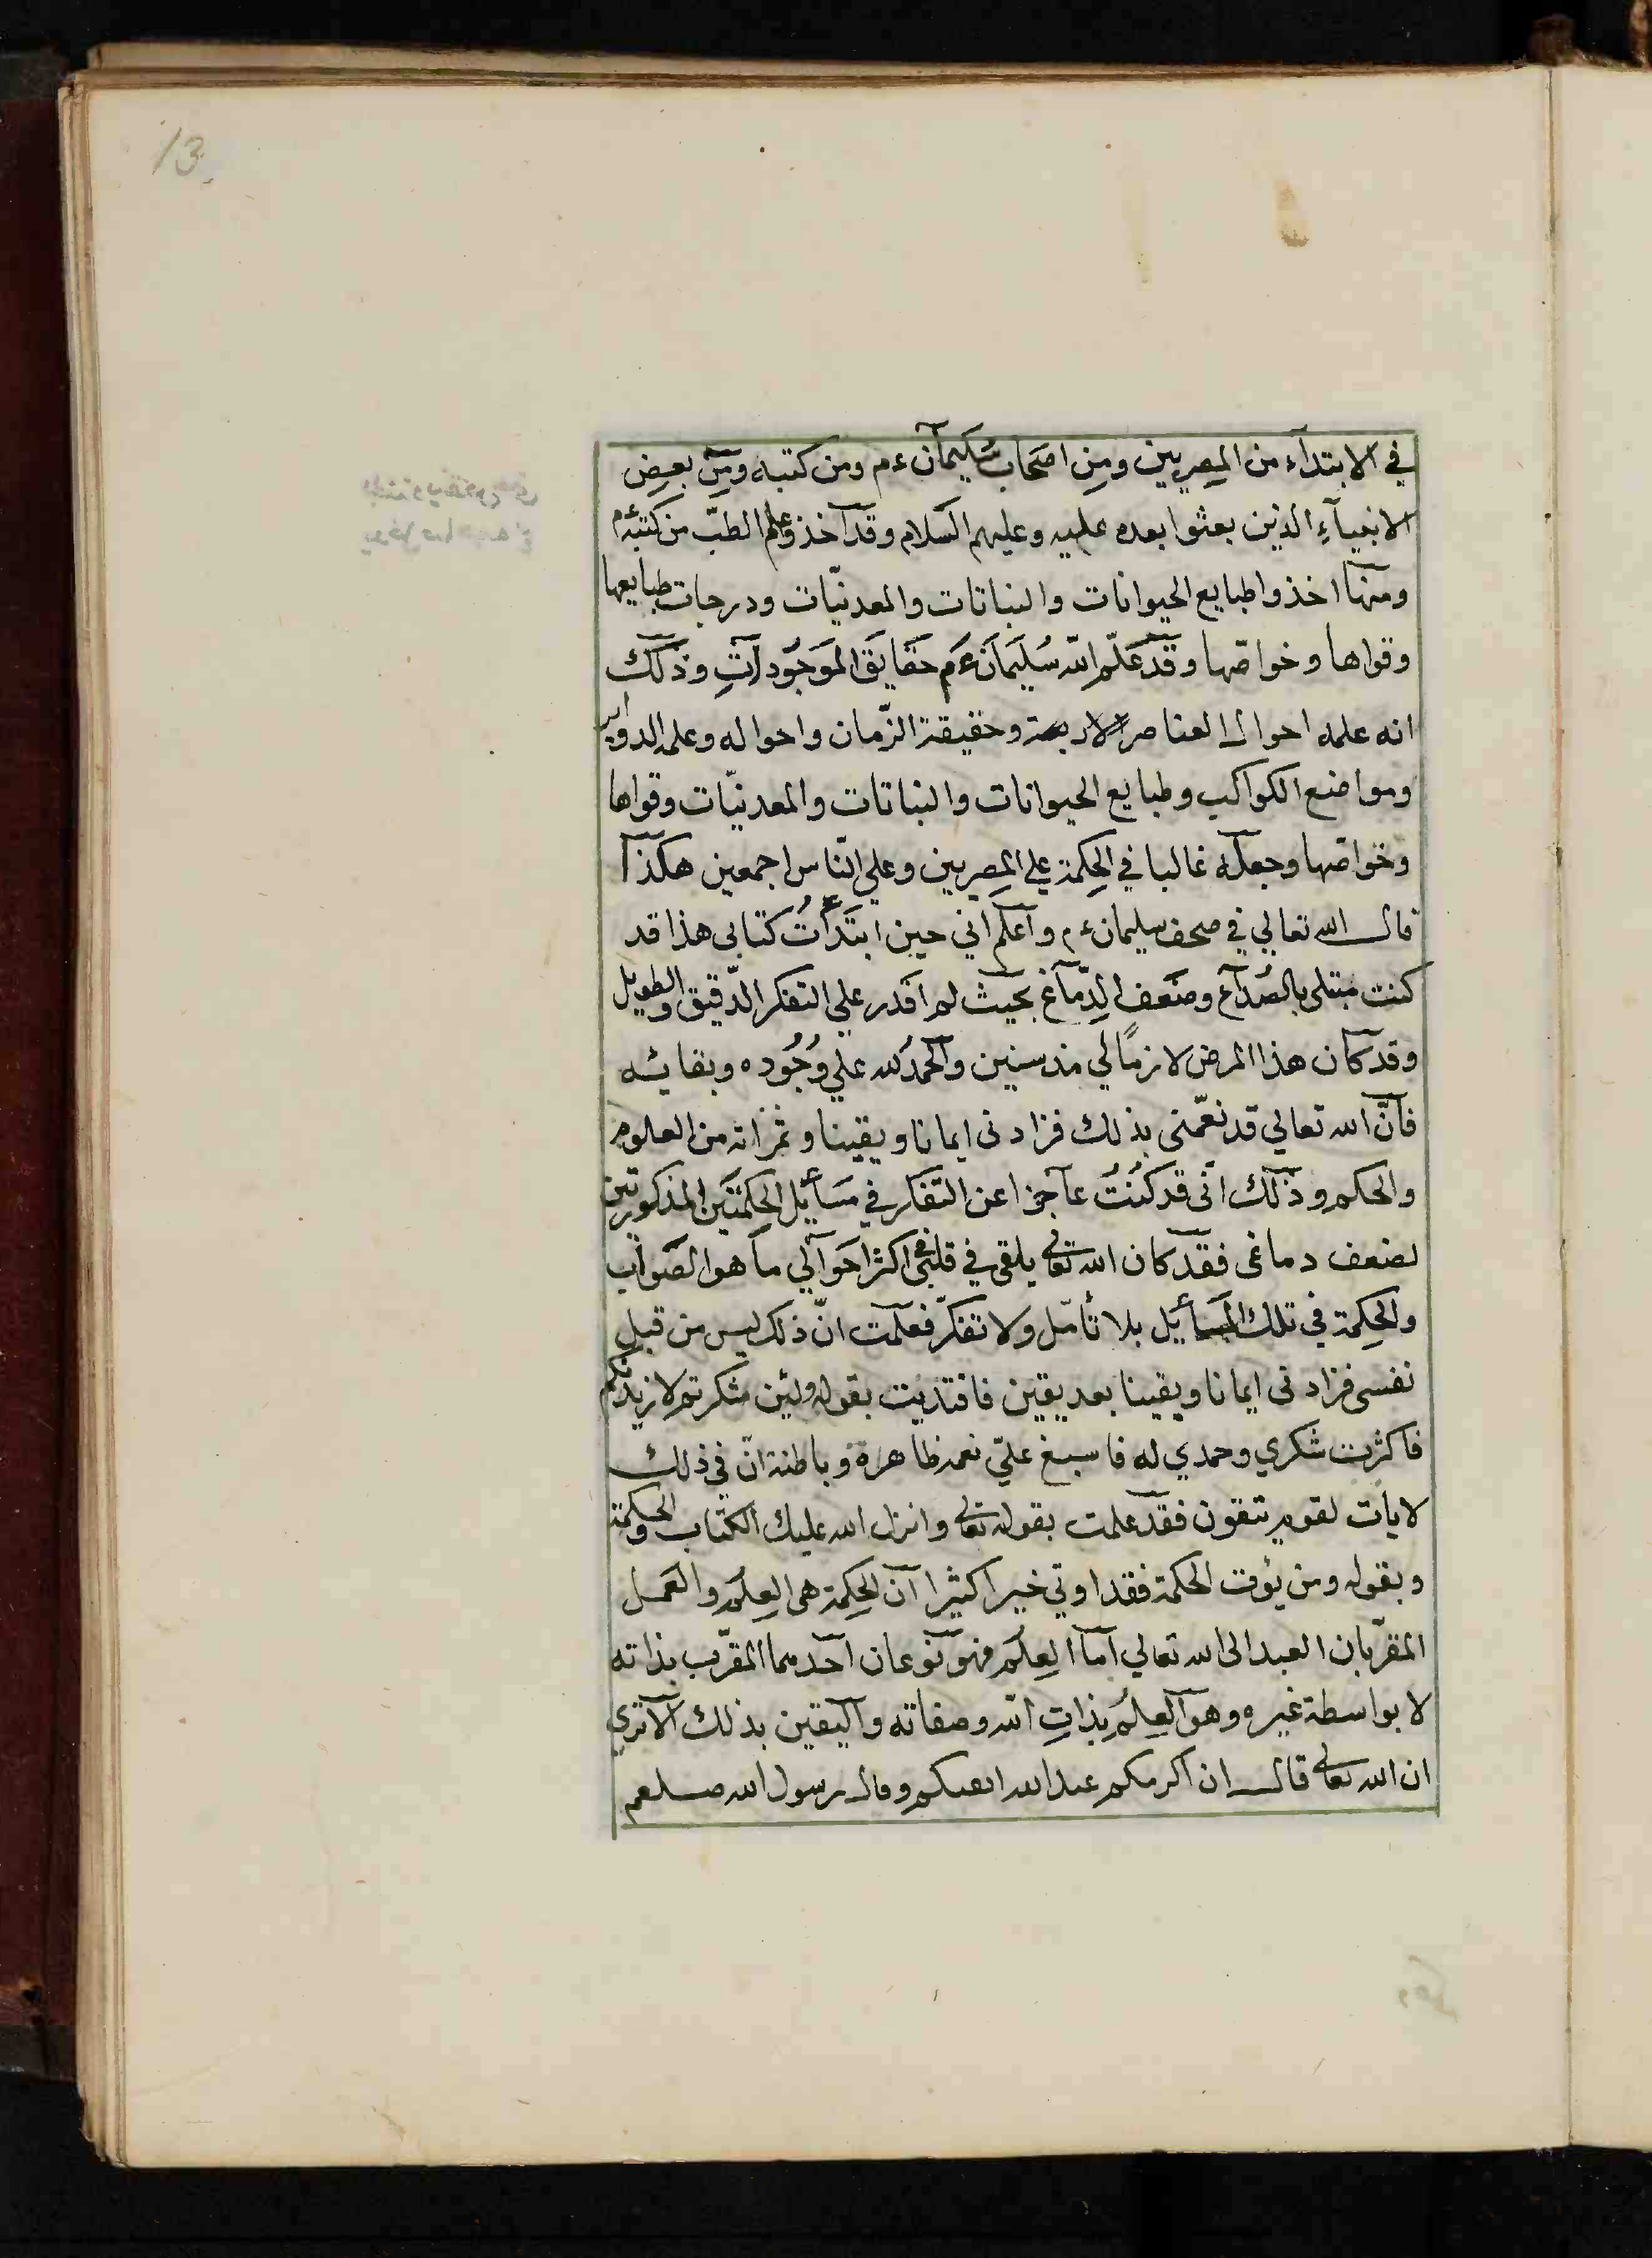 13
في الابتدآء من المصريين ومن اصحاب سليمآن ءم ومن كتبه ومن بعض
الانبيآءِ الذين بعثوا بعده عليه وعليهم السلام وقد آخذوا علم الطبّ من كتبه ءم
ومنهآ اخذوا طبايع الحيوانات والنباتات والمعدنيّات ودرجات طبايعها
وقواها وخواصّها وقد عَلّم اللّه سُليَمانَ ءَم حَقَايَق المَوَجَود آتِ وذلك
انه علمه احوال العناصر الاربعة وحقيقة الزّمان واحواله وعلمه الدواير
ومواضع الكواكب وطبايع الحيوانات والنباتات والمعدنيّات وقواها
وخواصّها وجعله غالبا في الحِكمة علي المِصريين وعلي النّاس اجمعين هكذآ
قال الله تعالي في صحف سليمان ءم وآعلم اني حين ابتَدَأتُ كتابى هذا قد
كنت مبتلى بالصُدآع وضَعف الدِّمآغ بحيث لم اقدر علي التفكر الدّقيق والطويل
وقد كان هذا المرض لازمًا لي مذ سنين والحمدُ لله علي وُجُوده وبقائه
فآنّ الله تعالي قد نعّمنى بذلك فزادنى ايمانا ويقينا وثمراته من العلوم
والحكم وذلك انّى قد كنُتُ عآجزا عن التّفكر في مَسَأيل الحِكمَتَين المذكورتين
لضعف دماغى فقد كان الله تعالى يلقى في قلبى في اكثر احَوآلي مآ هو الصَوآب
والحِكمة في تلك المسَأيل بلا تأمّل ولا تفكّر فعلمت انّ ذلك ليس من قبل
نفسى فزادنى ايمانا ويقينا بعد يقين فاقتديت بقوله ولئِن شكرتم لازيدنكم
فاكثرت شكري وحمدي له فاسبغ عليّ نعمه ظاهرة وباطنة انّ في ذلك
لايأت لقوم يتقون فقد علمت بقوله تعالى وانزل الله عليك الكتاب والحكمة
وبقوله ومن يؤت الحكمة فقد اوتي خيرا كثيرا آن الحِكمة هى العِلمُ والعَمل
المقرّبان العبد الى الله تعالي آمآ العِلمُ فهو نَوعان آحدهما المقرّب بذاته
لا بواسطة غيره وهو العِلمُ بذاتِ اللّه وصفاته واليقين بذلك الآتري
ان الله تعالى قال ان اكرمكم عند الله اتقىكم وقال رسول الله صلعم